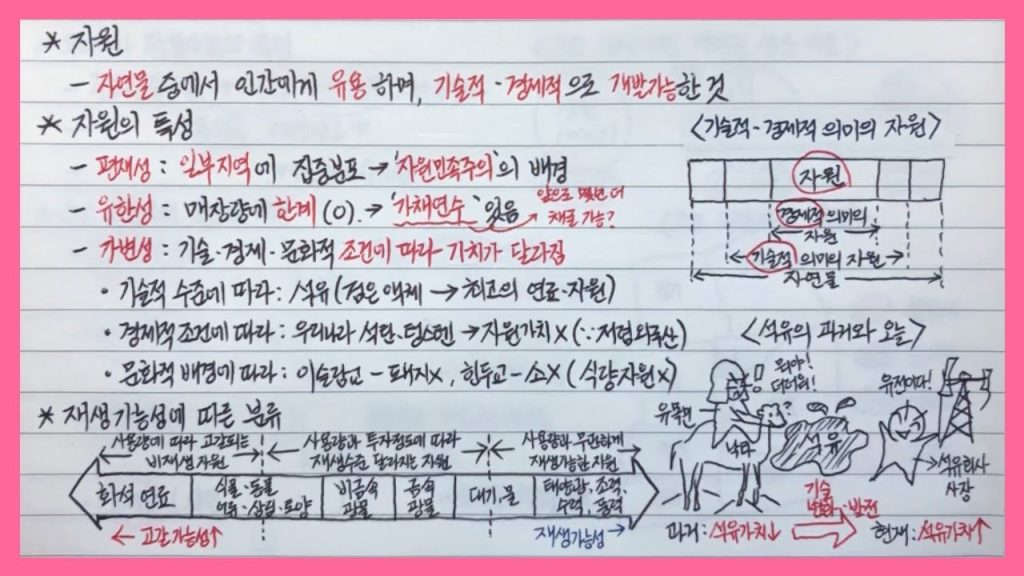 * 자원
- 자연물 중에서 인간에게 유용하며, 기술적·경제적으로 개발가능한 것
* 자원의 특성
- 편재성 : 일부지역에 집중분포 → '자원민족주의'의 배경
- 유한성 : 매장량에 한계(O). → '가채연수' 있음 → 앞으로 몇년 더 채굴 가능?
- 가변성 : 기술·경제·문화적 조건에 따라 가치가 달라짐
• 기술적 수준에 따라 : 석유(검은 액체 → 최고의 연료·자원)
• 경제적 조건에 따라 : 우리나라 석탄·텅스텐 → 자원가치 X (∵ 저렴 외국산)
• 문화적 배경에 따라 : 이슬람교 - 돼지X, 힌두교 - 소X (식량자원X)
<기술적·경제적 의미의 자원>
자원
경제적 의미의
자원
기술적 의미의 자원
자연물
<석유의 과거와 오늘>
뭐야!
더러워!
?
유목민
낙타
석유
유전이다!
석유회사
사장
기술
변화·발전
과거 : 석유가치↓
현재 : 석유가치↑
* 재생가능성에 따른 분류
사용량에 따라 고갈되는
비재생 자원
사용량과 투자정도에 따라
재생수준 달라지는 자원
사용량과 무관하게
재생가능한 자원
화석 연료
식물·동물
어류·삼림·토양
비금속
광물
금속
광물
대기,물
태양광, 조력,
수력, 풍력
← 고갈가능성↑
재생가능성 →